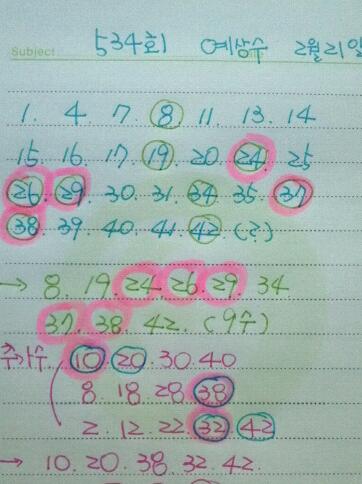 Subject 534회 예상수 2월21일
1. 4. 7. 8 11. 13. 14
15. 16. 17 19. 20. 24. 25
26. 29. 30. 31. 34 35 37
38. 39. 40. 41. 42. (?)
→ 8. 19. 24. 26. 29. 34
37. 38. 42. (9수)
추가수. 10. 20. 30. 40
8. 18. 28. 38
2. 12. 22. 32 42
→ 10. 20. 38. 32. 42.